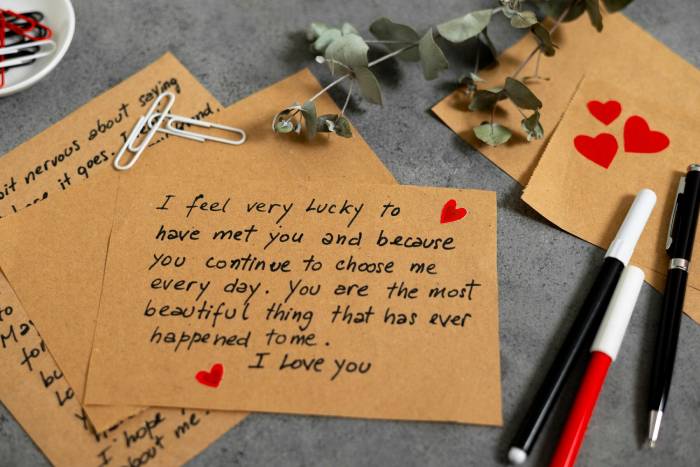 bit nervous about saying
it goes. I
I feel very Lucky to
have met you and because
you continue to choose me
every day. You are the most
beautiful thing that has ever
happened to me.
I Love you
to
for
I hope
about me